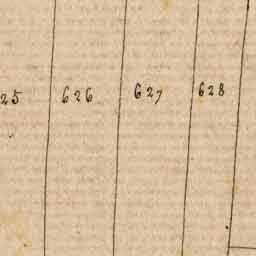 25 626 627 628